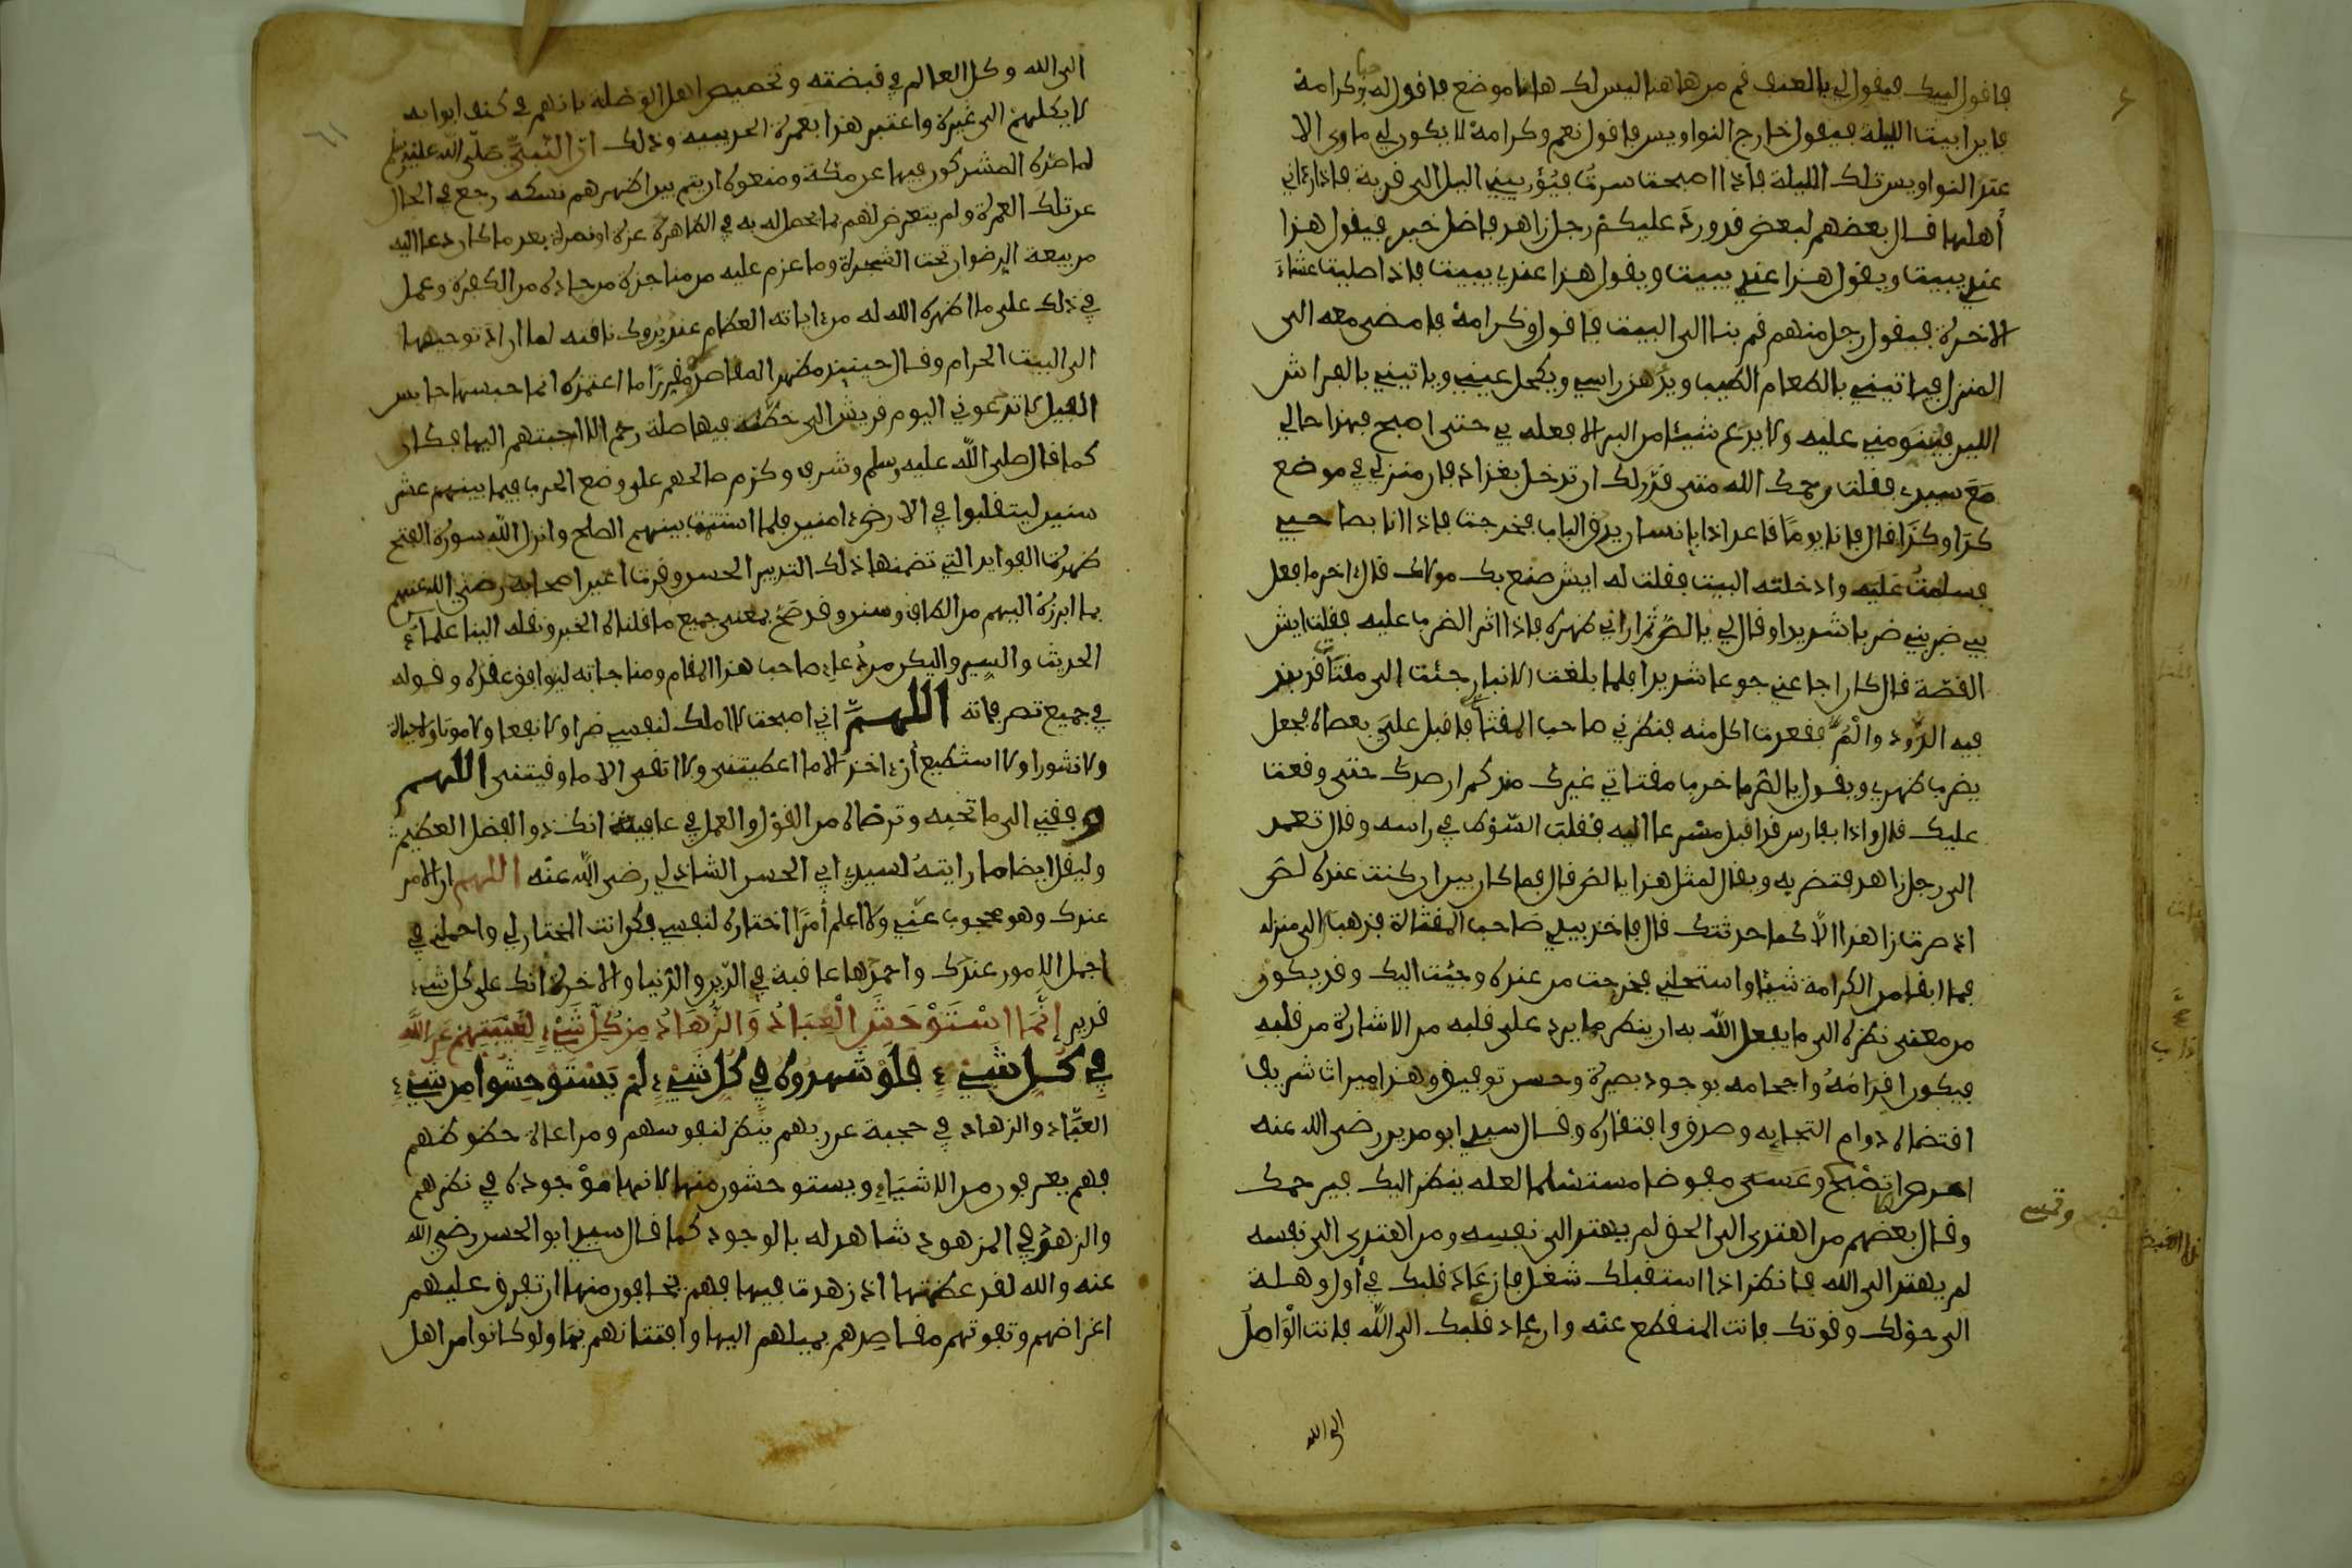 فاقول لبيك فيقول لي بالعنف قم من هاهنا ليس لك هاهنا موضع فاقول له حبا وكرامة
فاين ابيت الليلة فيقول خارج النواويس فاقول نعم وكرامة لا يكون لي ماوى الا
عند النواويس تلك الليلة فاذا اصبحت سرت فيؤويني الليل الى قرية فاذا رءاني
أهلها قال بعضهم لبعض قد ورد عليكم رجل زاهد فاضل خير فيقول هذا
عندي يبيت ويقول هذا عندي يبيت ويقول هذا عندي يبيت فاذا صليت عشاء
الاخرة فيقول رجل منهم قم بنا الى البيت فاقول وكرامة فامضى معه الى
المنزل فياتيني بالطعام الطيب ويدهن راسي ويكحل عيني وياتيني بالفراش
اللين فينومني عليه ولا يدع شيئا من البر الا فعله بي حتى اصبح فهذا حالي
مع سيدي فقلت رحمك الله متى قدر لك ان تدخل بغداد فان منزلي في موضع
كذا وكذا قال فانا يوما قاعد اذا بانسان يدق الباب فخرجت فاذا انا بصاحبي
فسلمت عليه وادخلته البيت فقلت له ايش صنع بك مولاك قال ءاخر ما فعل
بي ضربني ضربا شديدا وقال لي يا لص ثم اراني ظهره فاذا اثر الضرب عليه فقلت ايش
القصة قال كان اجاعني جوعا شديدا فلما بلغت الانبار جئت الى مقثاة قد نبذ
فيه الدود والمر فقعدت اكل منه فنظرني صاحب المقثاة فاقبل علي بعصاه فجعل
يضرب ظهري ويقول يا لص ما خرب مقثاتي غيرك منذ كم ارصدك حتى وقعت
عليك قال واذا بفارس قد اقبل مسرعا اليه فقلب السوط في راسه وقال تعمد
الى رجل زاهد فتضربه ويقال لمثل هذا يا لص قال فما كان بين ان كنت عنده لص
اذ صرت زاهدا الا كما حدثتك قال فاخذ بيدي صاحب المقثاة فذهب الى منزله
فما ابقا من الكرامة شيئا واستحلني فخرجت من عنده وجئت اليك وقد يكون
من معنى نظره الى ما يفعل الله به ان ينظر ما يرد على قلبه من الاشارة من قلبه
فيكون اقدامه واحجامه بوجود بصيرة وحسن توفيق وهذا ميراث شريف
اقتضاه دوام التجايه وصدق وافتقاره وقال سيدي ابو مدين رضى الله عنه
احرص ان تصبح وتمسى مفوضا مستسلما لعله ينظر اليك فيرحمك
وقال بعضهم من اهتدى الى الحق لم يهتد الى نفسه ومن اهتدى الى نفسه
لم يهتد الى الله فانظر اذا استقبلك شغل فان عاد قلبك في أول وهلة
الى حولك وقوتك فانت المنقطع عنه وان عاد قلبك الى الله فانت الواصل
الى الله
الى الله وكل العالم في قبضته وتخصيص اهل الوصلة بانهم في كنف ابوابه
لا يكلهم الى غيره واعتبر هذا بعمرة الحديبيه وذلك ان النبي صلى الله عليه وسلم
لما صده المشركون فيها عن مكة ومنعوه ان يتم بين اظهرهم نسكه رجع في الحال
عن تلك العمرة ولم يتعرض لهم بما يحصل له به في الظاهرة عزة او نصرة بعد ما كان دعا اليه
من بيعة الرضوان تحت الشجرة وما عزم عليه من مناجزة من حاده من الكفرة وعمل
في ذلك على ما اظهره الله له من ءاياته العظام عند بروك ناقته لما اراد توجيهها
الى البيت الحرام وقال حينيذ مظهر المقاصد ومقررا ما اعتمده انما حبسها حابس
الفيل لا تدعوني اليوم قريش الى خطة فيها صلة رحم الا اجبتهم اليها فكان
كما قال صلى الله عليه وسلم وشرف وكرم صالحهم على وضع الحرب فيما بينهم عشر
سنين ليتقلبوا في الارض ءامنين فلما استتب بينهم الصلح وانزل الله سورة الفتح
ظهرت الفوايد التي تضمنها ذلك التدبير الحسن وقرت اعين اصحابه رضي الله عنهم
بما ابرزه اليهم من الطاف وسنن وقد صح بمعنى جميع ما قلناه الخبر ونقله الينا علماء
الحديث والسير وليكن من دعاء صاحب هذا المقام ومناجاته ليوافق عقده وقوله
في جميع تصرفاته اللهم اني اصبحت لا املك لنفسي ضرا ولا نفعا ولا موتا ولا حياة
ولا نشورا ولا استطيع أن ءاخذ الا ما اعطيتنى ولا اتقى الا ما وقيتنى اللهم
وفقني الى ما تحبه وترضاه من القول والعمل في عافية انك ذو الفضل العظيم
وليقل ايضا ما رايته لسيدي ابي الحسن الشاذلي رضى الله عنه اللهم ان الامر
عندك وهو محجوب عني ولا اعلم أمرا اختاره لنفسي فكن انت المختار لي واحملني في
اجمل الامور عندك واحمدها عاقبة في الدين والدنيا والاخرة انك على كل شيء
قدير إنما استوحش العباد والزهاد من كل شيء لغيبتهم عن الله
في كل شيء فلو شهدوه في كل شيء لم يستوحشوا من شيء
العباد والزهاد في حجبة عن ربهم بنظر لنفوسهم ومراعاة حظوظهم
فهم يعرفون من الاشياء ويستوحشون منها لانها موجودة في نظرهم
والزهد في المزهود شاهد له بالوجود كما قال سيدي ابو الحسن رضى الله
عنه والله لقد عظمتها اذ زهدت فيها فهم يخافون منها ان تفرق عليهم
اغراضهم وتفوتهم مقاصدهم بميلهم اليها وافتتانهم بها ولو كانوا من اهل